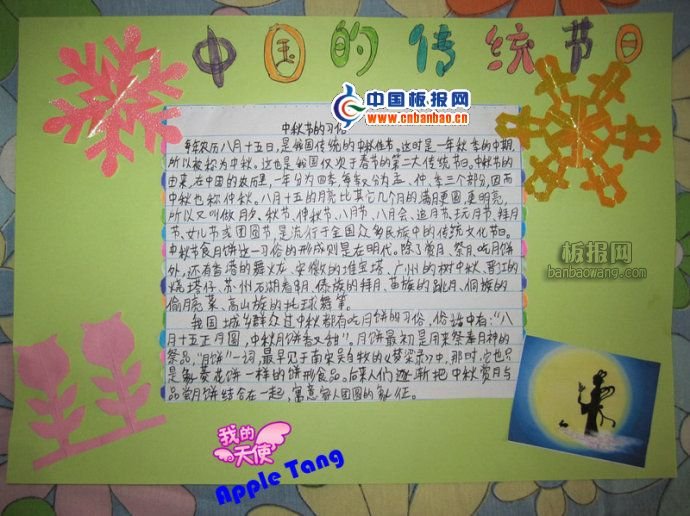 中国的传统节日
中国板报网
www.cnbanbao.cn
中秋节的习俗
每年农历八月十五日,是我国传统的中秋佳节。这时是一年秋季的中期,
所以被称为中秋。这也是我国仅次于春节的第二大传统节日。中秋节的
由来,在中国的农历里,一年分为四季,每季又分为孟、仲、季三个部分,因而
中秋也称仲秋。八月十五的月亮比其它几个月的满月更圆,更明亮,
所以又叫做月夕、秋节、仲秋节、八月节、八月会、追月节、玩月节、拜月
节、女儿节或团圆节,是流行于全国众多民族中的传统文化节日。
中秋节食月饼这一习俗的形成则是在明代。除了赏月、祭月、吃月饼
外,还有香港的舞火龙、安徽的堆宝塔、广州的树中秋、晋江的
烧塔仔、苏州石湖看串月、傣族的拜月、苗族的跳月、侗族的
偷月亮菜、高山族的托球舞等。
我国城乡群众过中秋都有吃月饼的习俗,俗话中有:“八
月十五正月圆,中秋月饼香又甜”。月饼最初是用来祭奉月神的
祭品,“月饼”一词,最早见于南宋吴自牧的《梦梁录》中,那时,它也只
是象菱花饼一样的饼形食品。后来人们逐渐把中秋赏月与
品尝月饼结合在一起,寓意家人团圆的象征。
板报网
banbaowang.com
我的
天使
Apple Tang